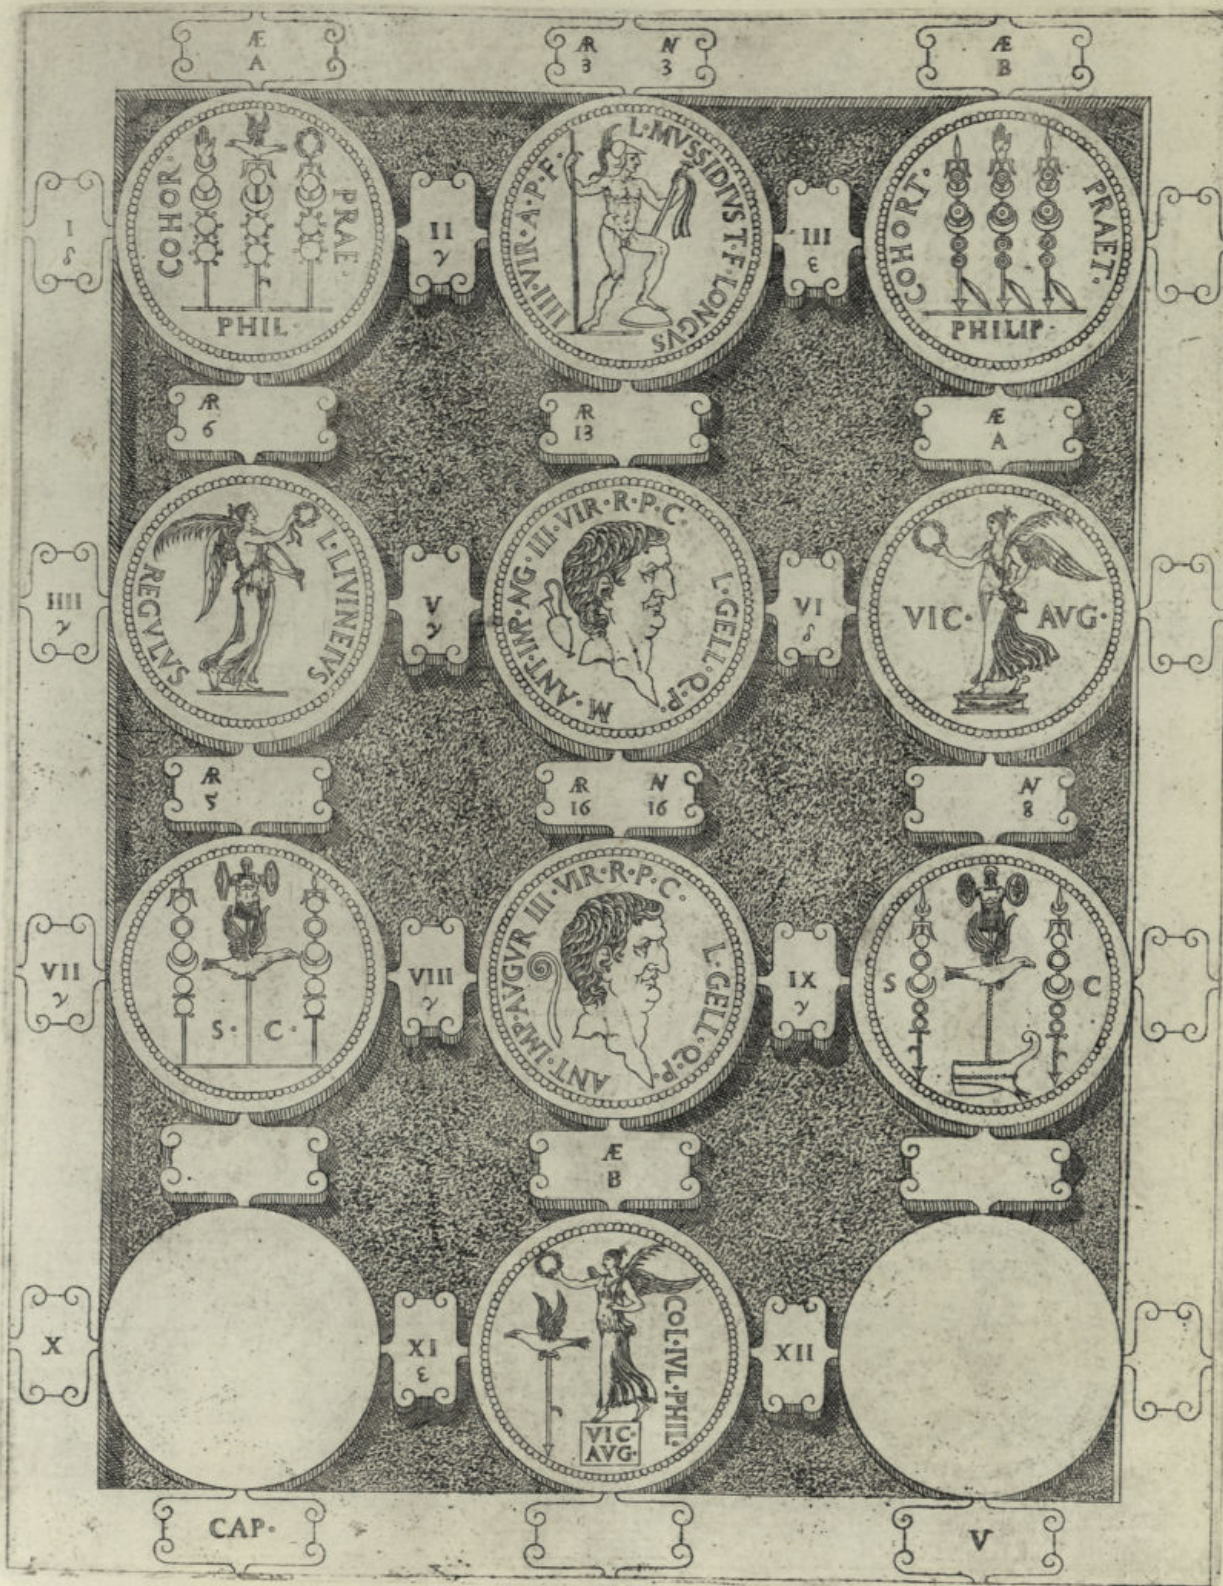 Æ
A
AR 3
N 3
Æ
B
I
δ
COHOR· PRAE·
PHIL·
II
γ
IIII·VIR·A·P·F· L·MVSSIDIVS·T·F·LONGVS
III
ε
COHORT· PRAET·
PHILIP·
AR
6
AR
13
Æ
A
IIII
γ
REGVLVS L·LIVINEIVS
V
γ
M·ANT·IMP·AVG·III·VIR·R·P·C· L·GELL·Q·P·
VI
δ
VIC· AVG·
AR
5
AR 16
N 16
N
8
VII
γ
S· C·
VIII
γ
ANT·IMP·AVGVR III·VIR·R·P·C· L·GELL·Q·P·
IX
γ
S C
Æ
B
X
XI
ε
COL·IVL·PHIL·
VIC·
AVG·
XII
CAP·
V